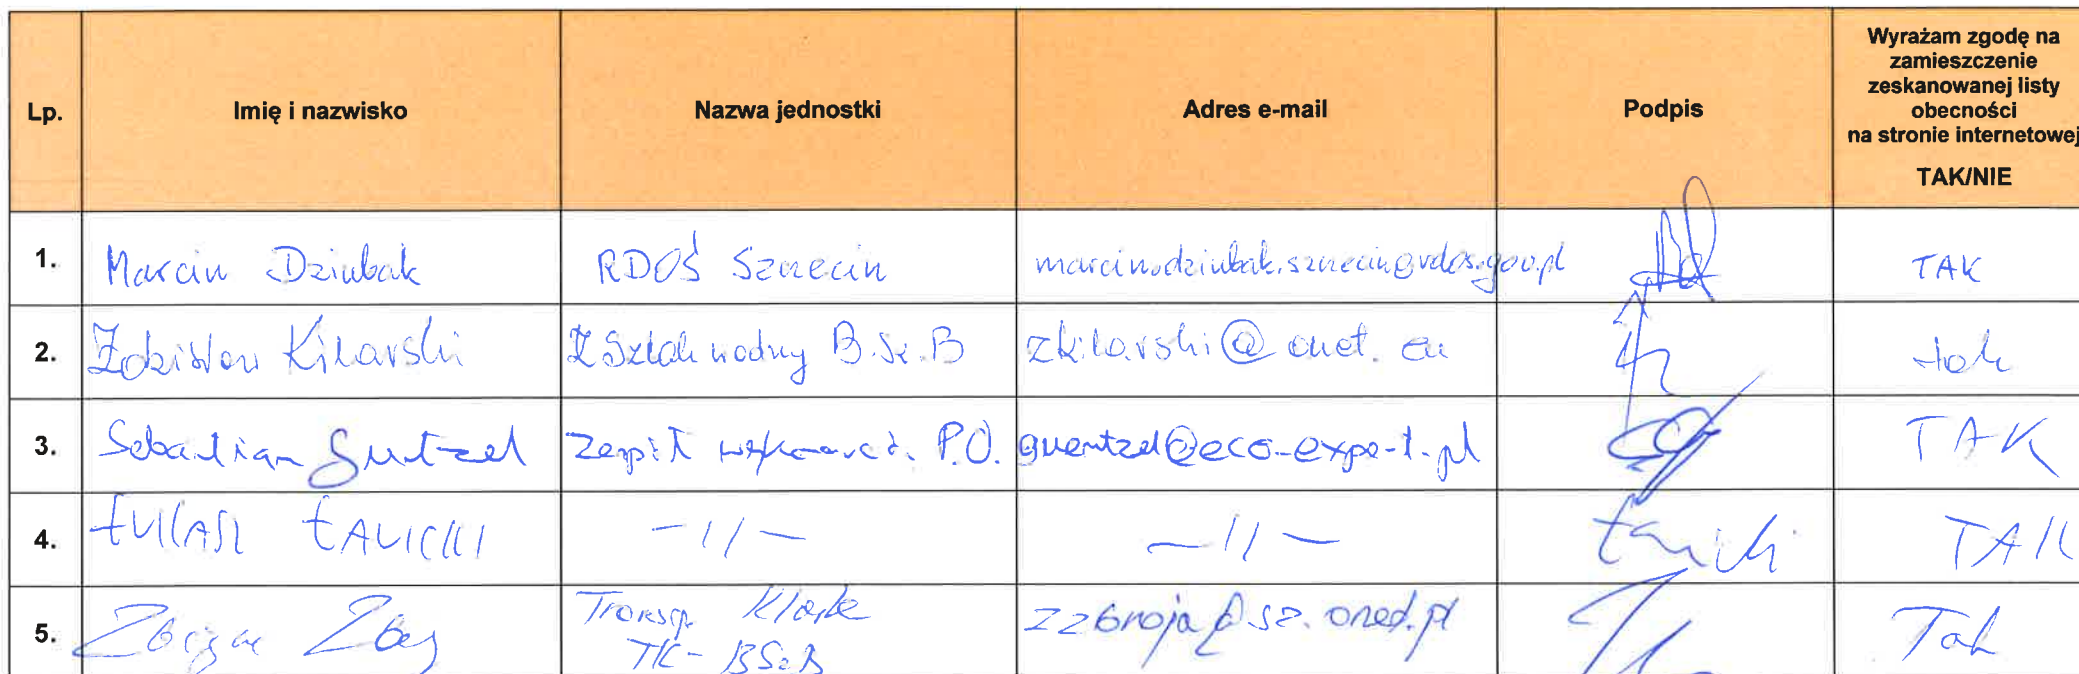 Lp.
Imię i nazwisko
Nazwa jednostki
Adres e-mail
Podpis
Wyrażam zgodę na
zamieszczenie
zeskanowanej listy
obecności
na stronie internetowej
TAK/NIE
1. Marcin Dziubak RDOŚ Szczecin marcin.dziubak.szczecin@rdos.gov.pl TAK
2. Zdzisław Kilarski B.Sz.B zkilarski@onet.eu tak
3. Sebastian Guentzel Zespół P.O. guentzel@eco-expert.pl TAK
4. ŁUKASZ ŁAWICKI -//- -//- TAK
5. Tak